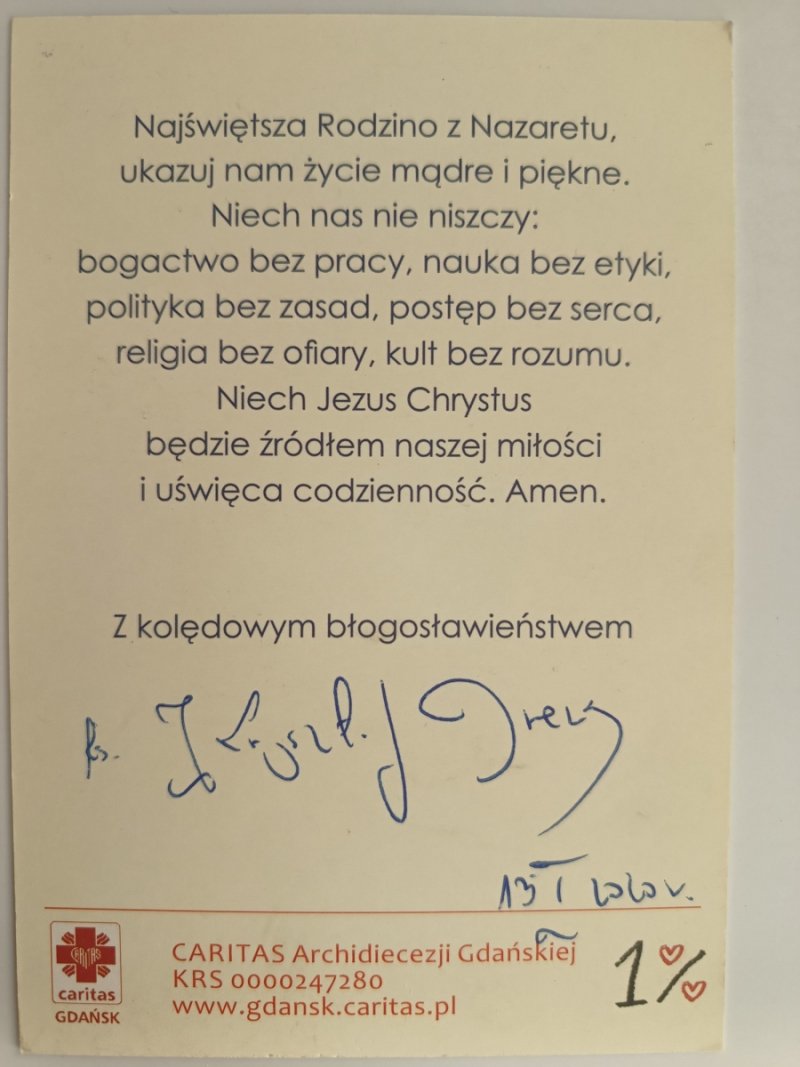 Najświętsza Rodzino z Nazaretu,
ukazuj nam życie mądre i piękne.
Niech nas nie niszczy:
bogactwo bez pracy, nauka bez etyki,
polityka bez zasad, postęp bez serca,
religia bez ofiary, kult bez rozumu.
Niech Jezus Chrystus
będzie źródłem naszej miłości
i uświęca codzienność. Amen.
Z kolędowym błogosławieństwem
ks.
13 I 2020 r.
CARITAS
caritas
GDAŃSK
CARITAS Archidiecezji Gdańskiej
KRS 0000247280
www.gdansk.caritas.pl
1%